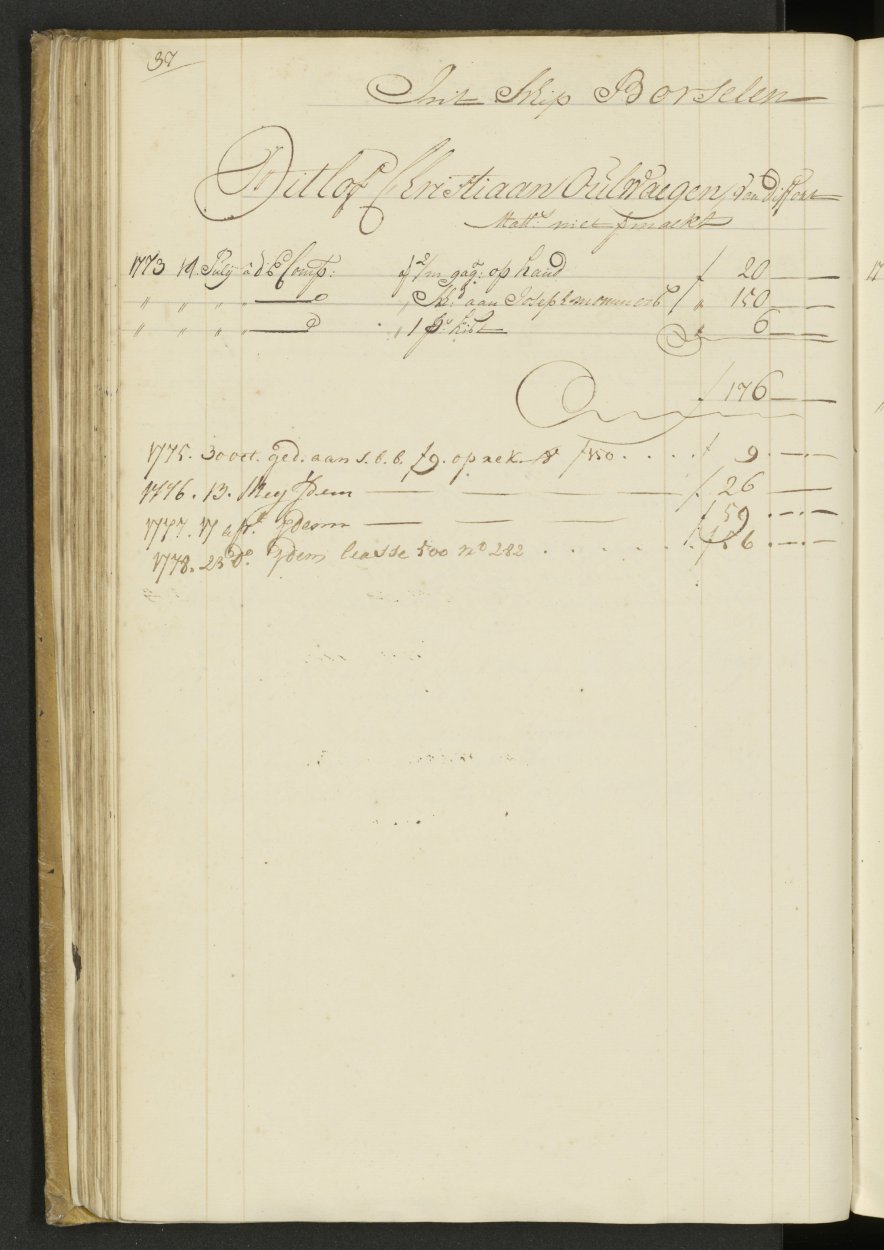 37
Int Schip Borselen
Ditlof Christiaan Oulwaegen, van
Matt: niet gemaekt
1773 14 July a d'E Comp: 2/m gag: op hand f 20
" " " " aan Joseph f " 150
" " " " " 1 kist " 6
f 176
1775. 30 oct. ged. aan s. b. b. f 9. op rek. v f 150. f 9.
1776. 13. Mey Idem f 26
1777. 17 apr. Idem f 59
1778. 23 do. Idem liasse 500 no 282 f 56
17